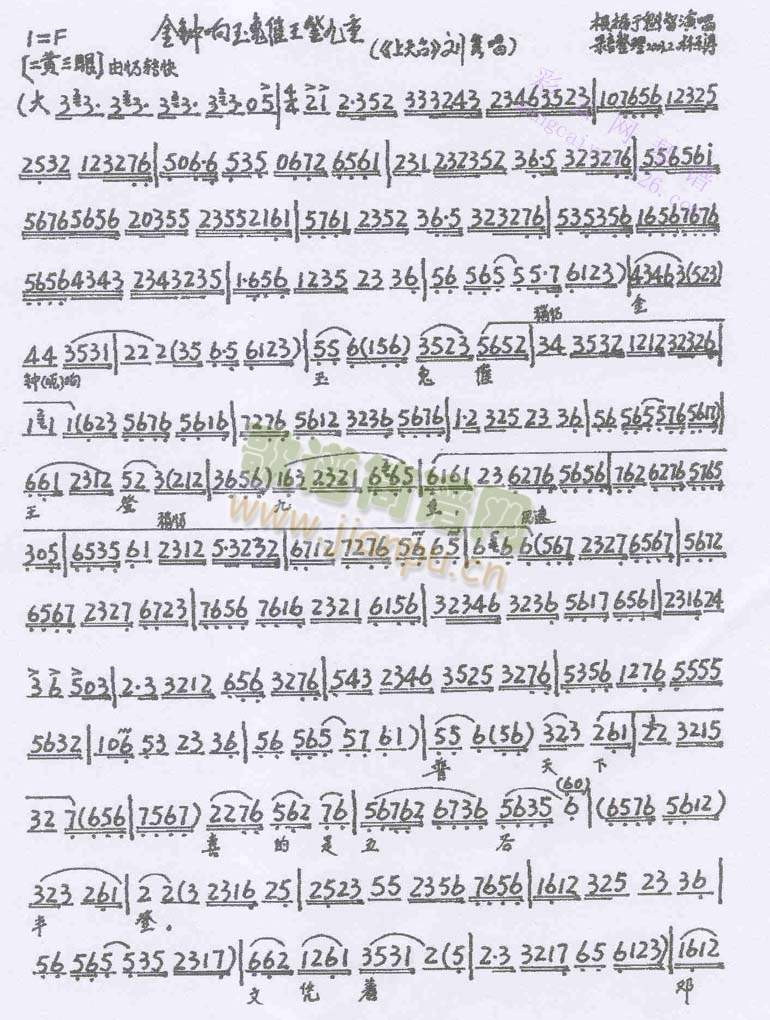 1=F 金钟响玉兔催王登九重 (《上天台》刘秀唱) 根据于魁智演唱
[二黄三眼] 由切转快 录音整理2013.2.
(大 3 3· 3 3· 3 3· 3 3· 0 5 | 2 1 2·352 333243 23463523 | 107656 12325
2532 123276 | 506·6 535 0672 6561 | 231 232352 36·5 323276 | 556561
56765656 20355 23552161 | 5761 2352 36·5 323276 | 535356 16567676
56564343 2343235 | 1·656 1235 23 36 | 56 565 55·7 6123) | 43463(523)
金
44 3531 | 22 2(35 6·5 6123) | 55 6(156) 3523 5652 | 34 3532 1212 32326 |
钟(呃)响 玉 兔 催
1 1 1(623 5676 5616 | 7276 5612 3236 5676 | 1·2 325 23 36 | 56 565576 5617) |
661 2312 52 3(212 | 3656) 163 2321 6 65 | 6161 23 6276 5656 | 762 6276 5765
王 登 九 重
305 | 6535 61 2312 5·3232 | 6712 7276 56 65 | 6 6 6(567 2327 6567 | 5672
6567 2327 6723 | 7656 7616 2321 6156 | 32346 3236 5617 6561 | 231624
3 6 503 | 2·3 3212 656 3276 | 543 2346 3525 3276 | 5356 1276 5555
5632 | 106 53 23 36 | 56 565 57 61) | 55 6(56) 323 261 | 22 3215
普 天 下
32 7(656 | 7567) 2276 562 76 | 56762 6736 5635 6 (60) | (6576 5612)
喜 的 是 五 谷
323 261 | 2 2(3 2316 25 | 2523 55 2356 7656 | 1612 325 23 36 |
丰 登。
56 565 535 2317) | 662 1261 3531 2(5 | 2·3 3217 65 6123) | 1612
文 凭 着 邓
歌谱简谱网
www.jianpu.cn